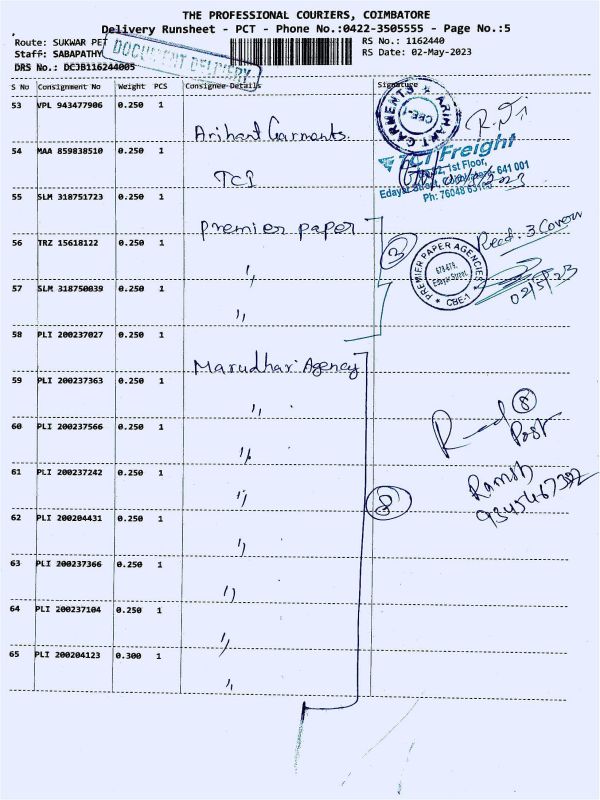 THE PROFESSIONAL COURIERS, COIMBATORE
Delivery Runsheet - PCT - Phone No.:0422-3505555 - Page No.:5
Route: SUKWAR PET RS No.: 1162440
Staff: SABAPATHY RS Date: 02-May-2023
DRS No.: DCJB116244005
DOCUMENT DELIVERY
S No Consignment No Weight PCS Consignee Details Signature
53 VPL 943477906 0.250 1 Arihant Garments
ARIHANT GARMENTS CBE-1
54 MAA 859838510 0.250 1 TCI
TCI Freight
1st Floor,
Edayar Street, 641 001
Ph: 76048
55 SLM 318751723 0.250 1 Premier paper
56 TRZ 15618122 0.250 1 ,, 3 Recd. 3 Covers
PREMIER PAPER AGENCIES
678-679,
Edayar Street,
CBE-1
02/5/23
57 SLM 318750039 0.250 1 ,,
58 PLI 200237027 0.250 1 Marudhar Agency
59 PLI 200237363 0.250 1 ,,
60 PLI 200237566 0.250 1 ,, 8 Post
61 PLI 200237242 0.250 1 ,, 8
Ramesh
9345467392
62 PLI 200204431 0.250 1 ,,
63 PLI 200237366 0.250 1 ,,
64 PLI 200237104 0.250 1 ,,
65 PLI 200204123 0.300 1 ,,